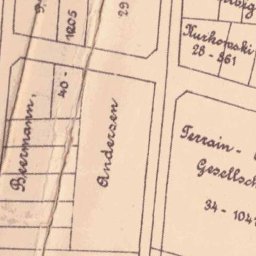 1205
29
Kurkowski
28-861
40-
Beermann,
Andersen
Terrain-
Gesellsch
34-104